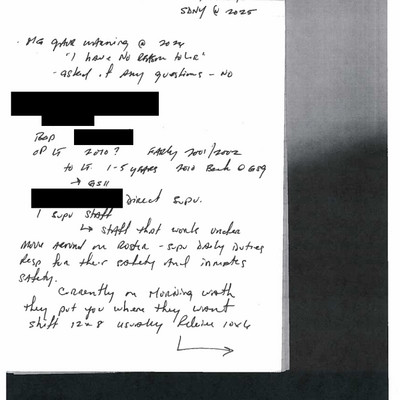 SDNY @ 2025
· MG gave warning @ 2024
"I have no reason to lie"
- asked if any questions - NO
OP LT 2010? Early 2001/2002
to Lt. 1-5 years 2010 Back @ GS9
→ GS11
Direct Supv.
1 Supv Staff
↳ Staff that work under
move around on Roster - supv daily duties
Resp for their safety and inmates
safety.
Currently on Morning watch
they put you where they want
shift 12x8 usually Relieve 10x6